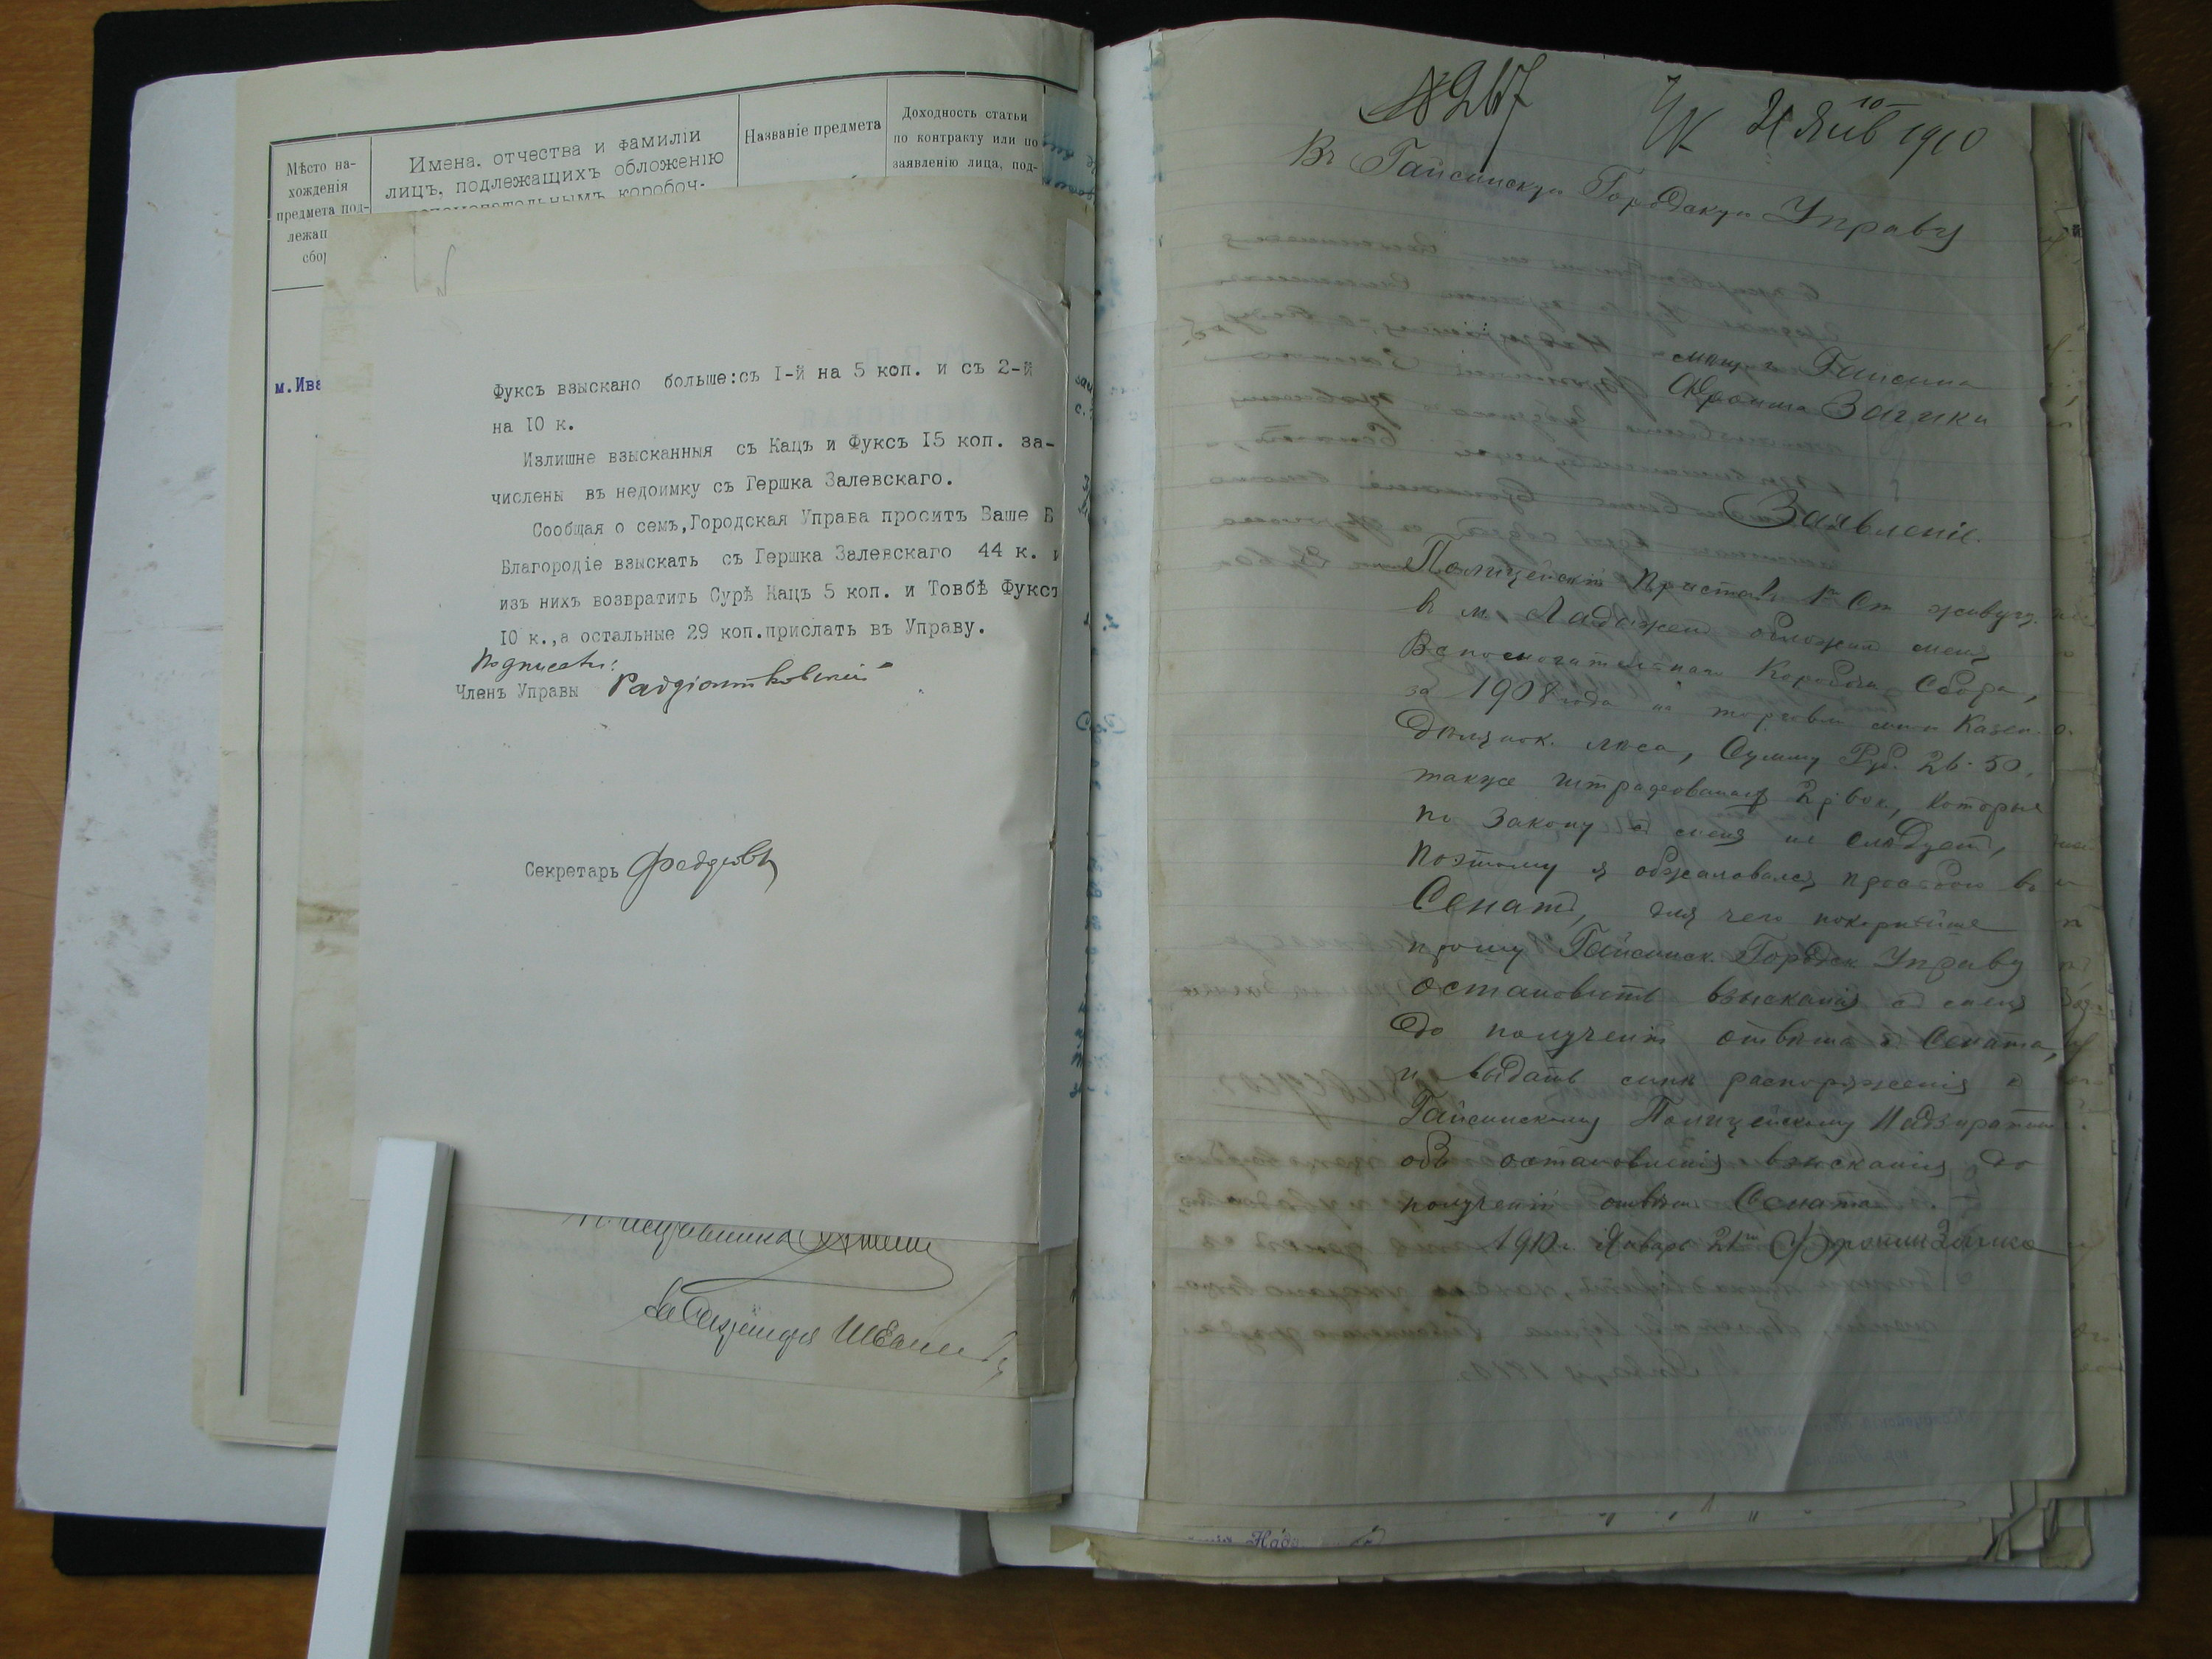 Мѣсто на-
хожденія
предмета под-
лежащ
сбор
Имена, отчества и фамиліи
лицъ, подлежащихъ обложенію
вспомогательнымъ коробоч-
Названіе предмета
Доходность статьи
по контракту или по
заявленію лица, под-
м.Ива
Фуксъ взыскано больше:съ I-й на 5 коп. и съ 2-й
на 10 к.
Излишне взысканныя съ Кацъ и Фуксъ 15 коп. за-
числены въ недоимку съ Гершка Залевскаго.
Сообщая о семъ,Городская Управа проситъ Ваше Б
Благородіе взыскать съ Гершка Залевскаго 44 к. и
изъ нихъ возвратить Сурѣ Кацъ 5 коп. и Товбѣ Фуксъ
10 к.,а остальные 29 коп.прислать въ Управу.
Подписали:
Членъ Управы
Секретарь
№ 267
21 Янв 1910
Въ Гайсинскую Городскую Управу
мѣщ. г. Гайсина
Заики
Заявленіе.
Полицейскій Приставъ 1го Ст живущ.
в м. Ладыжен обложил меня
Вспомогательнаго Коробоч. Сбора,
за 1908 года на торговли мною Казен.
Дѣлянок. лѣса, Сумму Руб. 26-50.
также штрафованная 2р 60к, которыя
по Закону с меня не слѣдует,
Поэтому я обжаловался просьбою въ
Сенатъ, для чего покорнѣйше
прошу Гайсинск. Городск. Управу
остановить взысканія с меня
до полученія отвѣта с Сената,
и выдать мнѣ распоряженія к
Гайсинскому Полицейскому Надзирателю
объ остановленія взысканія до
полученія отвѣта Сената.
1910 г. Январь 21го Заика